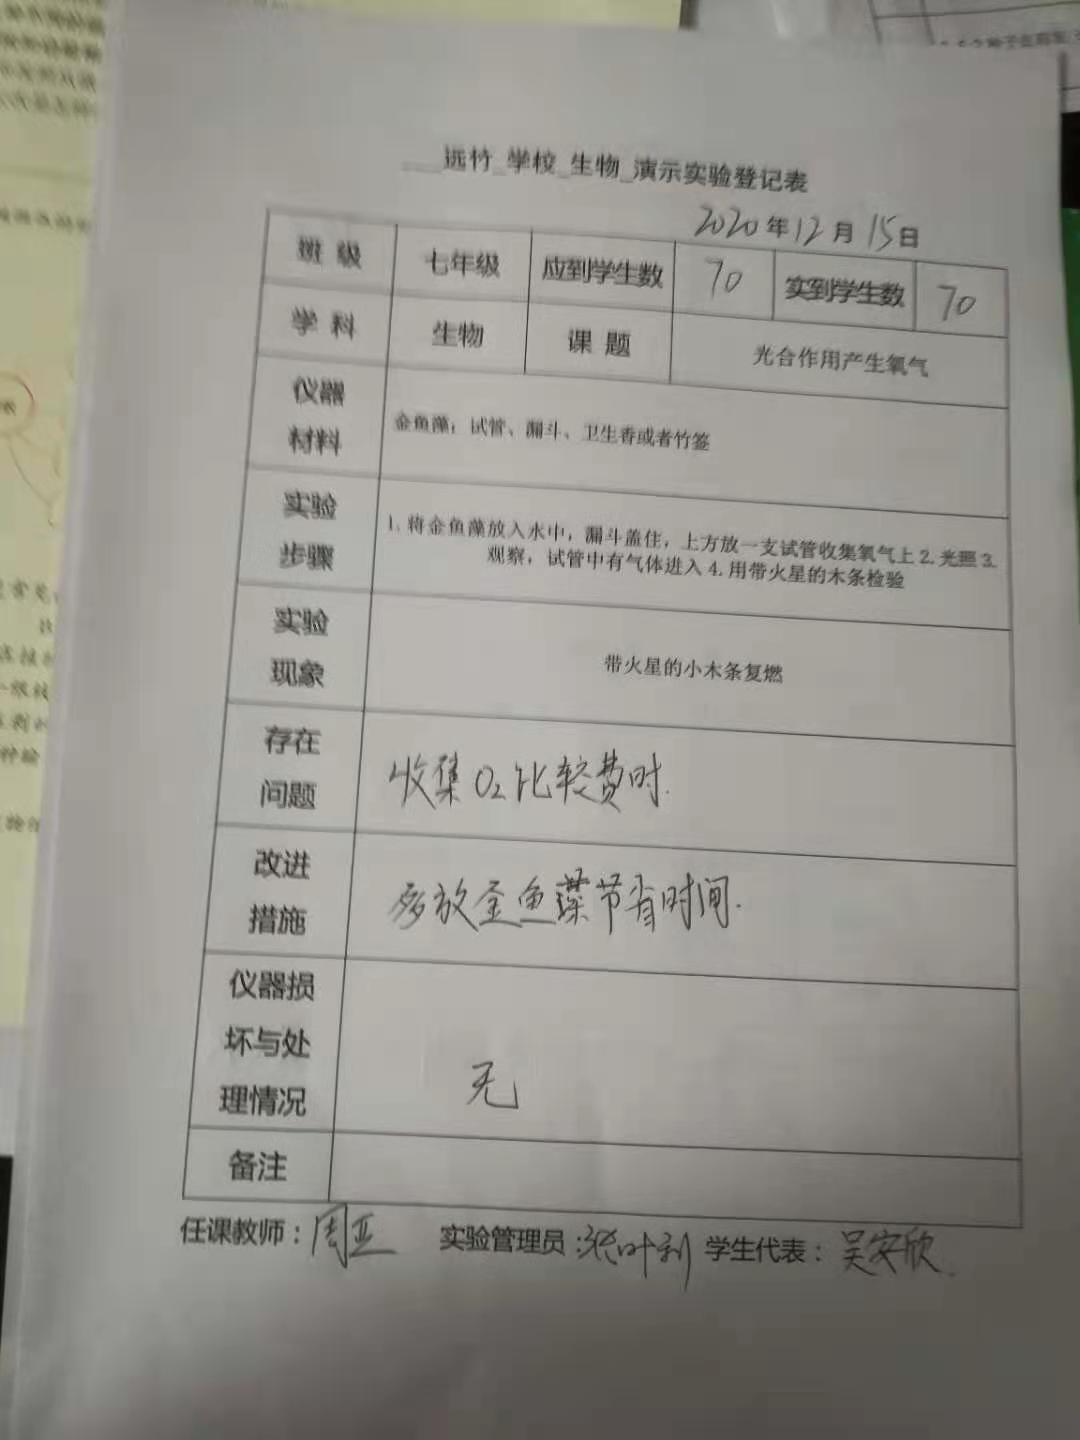 远竹_学校_生物_演示实验登记表
2020年12月15日
班级 七年级 应到学生数 70 实到学生数 70
学科 生物 课题 光合作用产生氧气
仪器
材料
金鱼藻；试管、漏斗、卫生香或者竹签
实验
步骤
1.将金鱼藻放入水中，漏斗盖住，上方放一支试管收集氧气上2.光照3.
观察，试管中有气体进入4.用带火星的木条检验
实验
现象
带火星的小木条复燃
存在
问题
收集O₂比较费时.
改进
措施
多放金鱼藻节省时间.
仪器损
坏与处
理情况
无
备注
任课教师：周亚 实验管理员：张叶利 学生代表：吴安欣